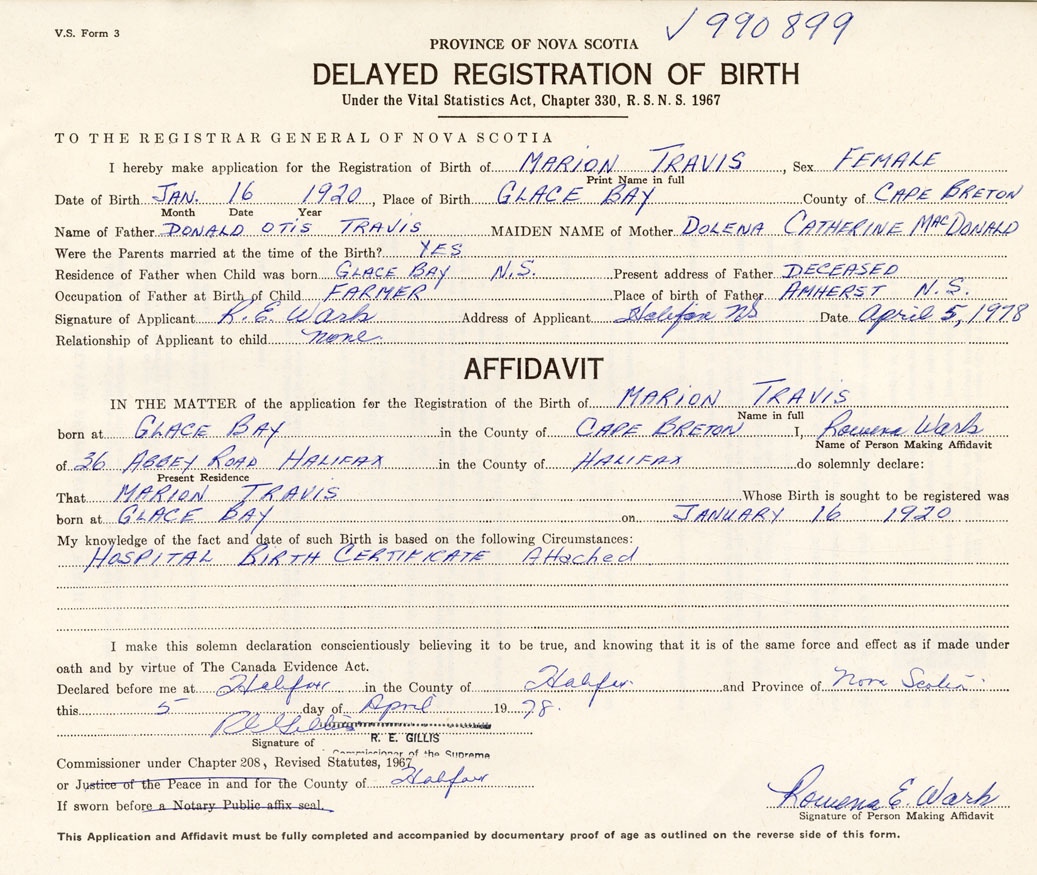 V.S. Form 3
√ 990899
PROVINCE OF NOVA SCOTIA
DELAYED REGISTRATION OF BIRTH
Under the Vital Statistics Act, Chapter 330, R.S.N.S. 1967
TO THE REGISTRAR GENERAL OF NOVA SCOTIA
I hereby make application for the Registration of Birth of MARION TRAVIS, Sex FEMALE
Print Name in full
Date of Birth JAN. 16 1920, Place of Birth GLACE BAY County of CAPE BRETON
Month Date Year
Name of Father DONALD OTIS TRAVIS MAIDEN NAME of Mother DOLENA CATHERINE MACDONALD
Were the Parents married at the time of the Birth? YES
Residence of Father when Child was born GLACE BAY N.S. Present address of Father DECEASED
Occupation of Father at Birth of Child FARMER Place of birth of Father AMHERST N.S.
Signature of Applicant R. E. Wark Address of Applicant Halifax NS Date April 5, 1978
Relationship of Applicant to child none.
AFFIDAVIT
IN THE MATTER of the application for the Registration of the Birth of MARION TRAVIS
Name in full
born at GLACE BAY in the County of CAPE BRETON I, Rowena Wark
Name of Person Making Affidavit
of 36 ABBEY ROAD HALIFAX in the County of HALIFAX do solemnly declare:
Present Residence
That MARION TRAVIS Whose Birth is sought to be registered was
born at GLACE BAY on JANUARY 16 1920
My knowledge of the fact and date of such Birth is based on the following Circumstances:
HOSPITAL BIRTH CERTIFICATE Attached
I make this solemn declaration conscientiously believing it to be true, and knowing that it is of the same force and effect as if made under
oath and by virtue of The Canada Evidence Act.
Declared before me at Halifax in the County of Halifax and Province of Nova Scotia.
this 5 day of April 1978.
R E Gillis
R. E. GILLIS
Signature of
Commissioner of the Supreme
Commissioner under Chapter 208, Revised Statutes, 1967
or Justice of the Peace in and for the County of Halifax
If sworn before a Notary Public affix seal.
Rowena E. Wark
Signature of Person Making Affidavit
This Application and Affidavit must be fully completed and accompanied by documentary proof of age as outlined on the reverse side of this form.